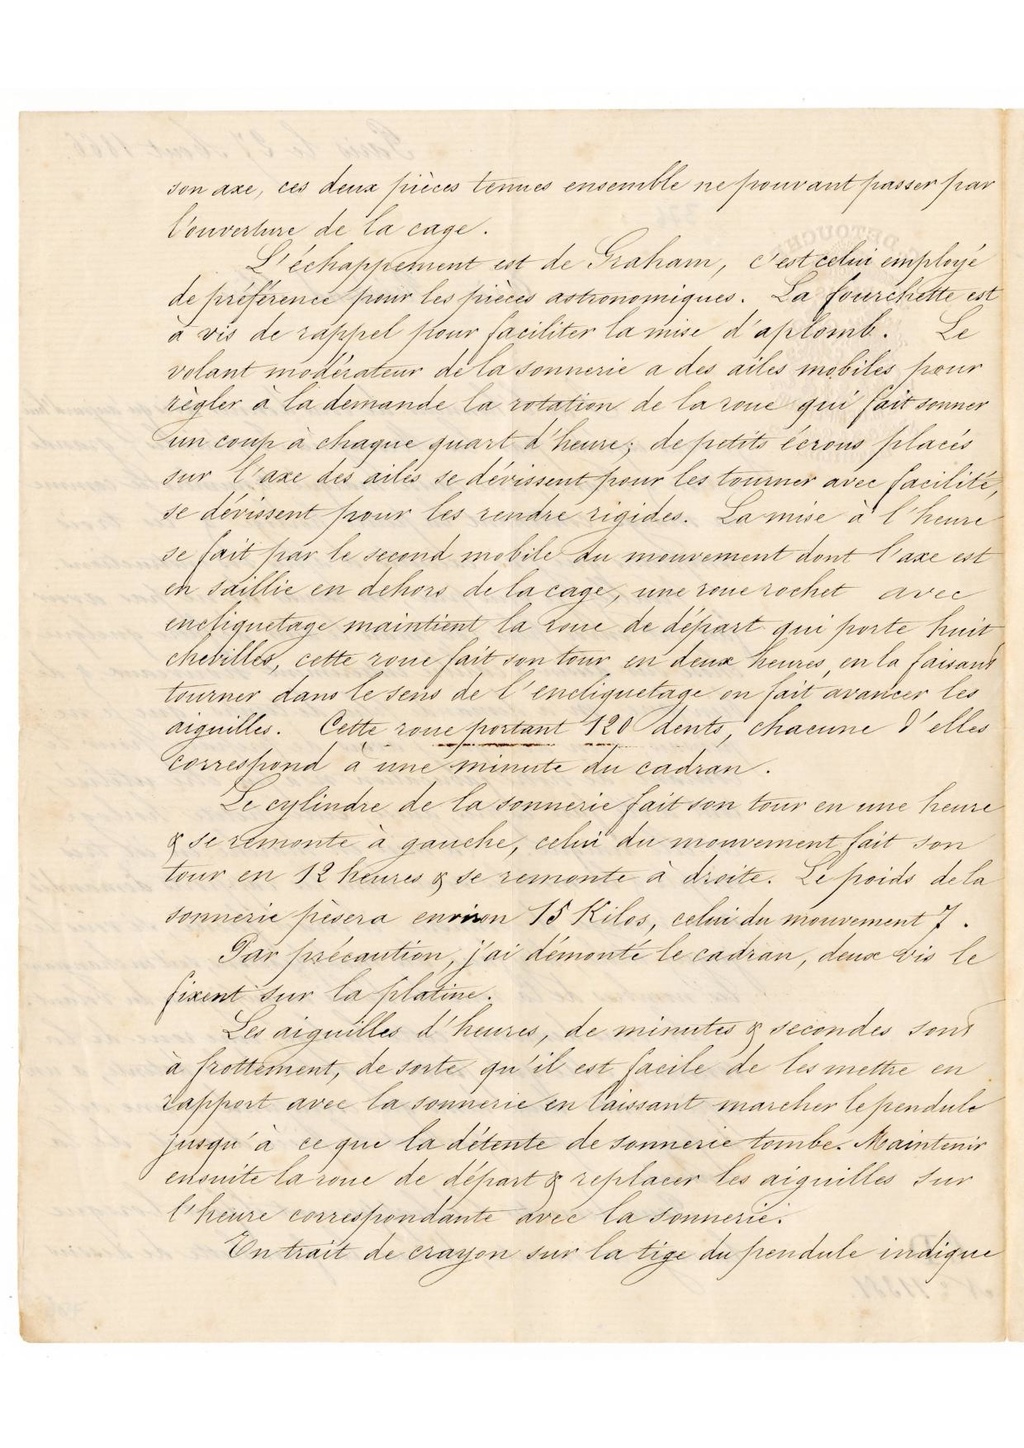 son axe, ces deux pièces tenues ensemble ne pouvant passer par
l'ouverture de la cage.
L'échappement est de Graham, c'est celui employé
de préférence pour les pièces astronomiques. La fourchette est
à vis de rappel pour faciliter la mise d'aplomb. Le
volant modérateur de la sonnerie a des ailes mobiles pour
règler à la demande la rotation de la roue qui fait sonner
un coup à chaque quart d'heure; de petits écrous placés
sur l'axe des ailes se dévissent pour les tourner avec facilité,
se dévissent pour les rendre rigides. La mise à l'heure
se fait par le second mobile du mouvement dont l'axe est
en saillie en dehors de la cage, une roue rochet avec
encliquetage maintient la roue de départ qui porte huit
chevilles, cette roue fait son tour en deux heures, en la faisant
tourner dans le sens de l'encliquetage on fait avancer les
aiguilles. Cette roue portant 120 dents, chacune d'elles
correspond à une minute du cadran.
Le cylindre de la sonnerie fait son tour en une heure
& se remonte à gauche, celui du mouvement fait son
tour en 12 heures & se remonte à droite. Le poids de la
sonnerie pèsera environ 15 Kilos, celui du mouvement 7.
Par précaution, j'ai démonté le cadran, deux vis le
fixent sur la platine.
Les aiguilles d'heures, de minutes & secondes sont
à frottement, de sorte qu'il est facile de les mettre en
rapport avec la sonnerie en laissant marcher le pendule
jusqu'à ce que la détente de sonnerie tombe. Maintenir
ensuite la roue de départ & replacer les aiguilles sur
l'heure correspondante avec la sonnerie.
Un trait de crayon sur la tige du pendule indique